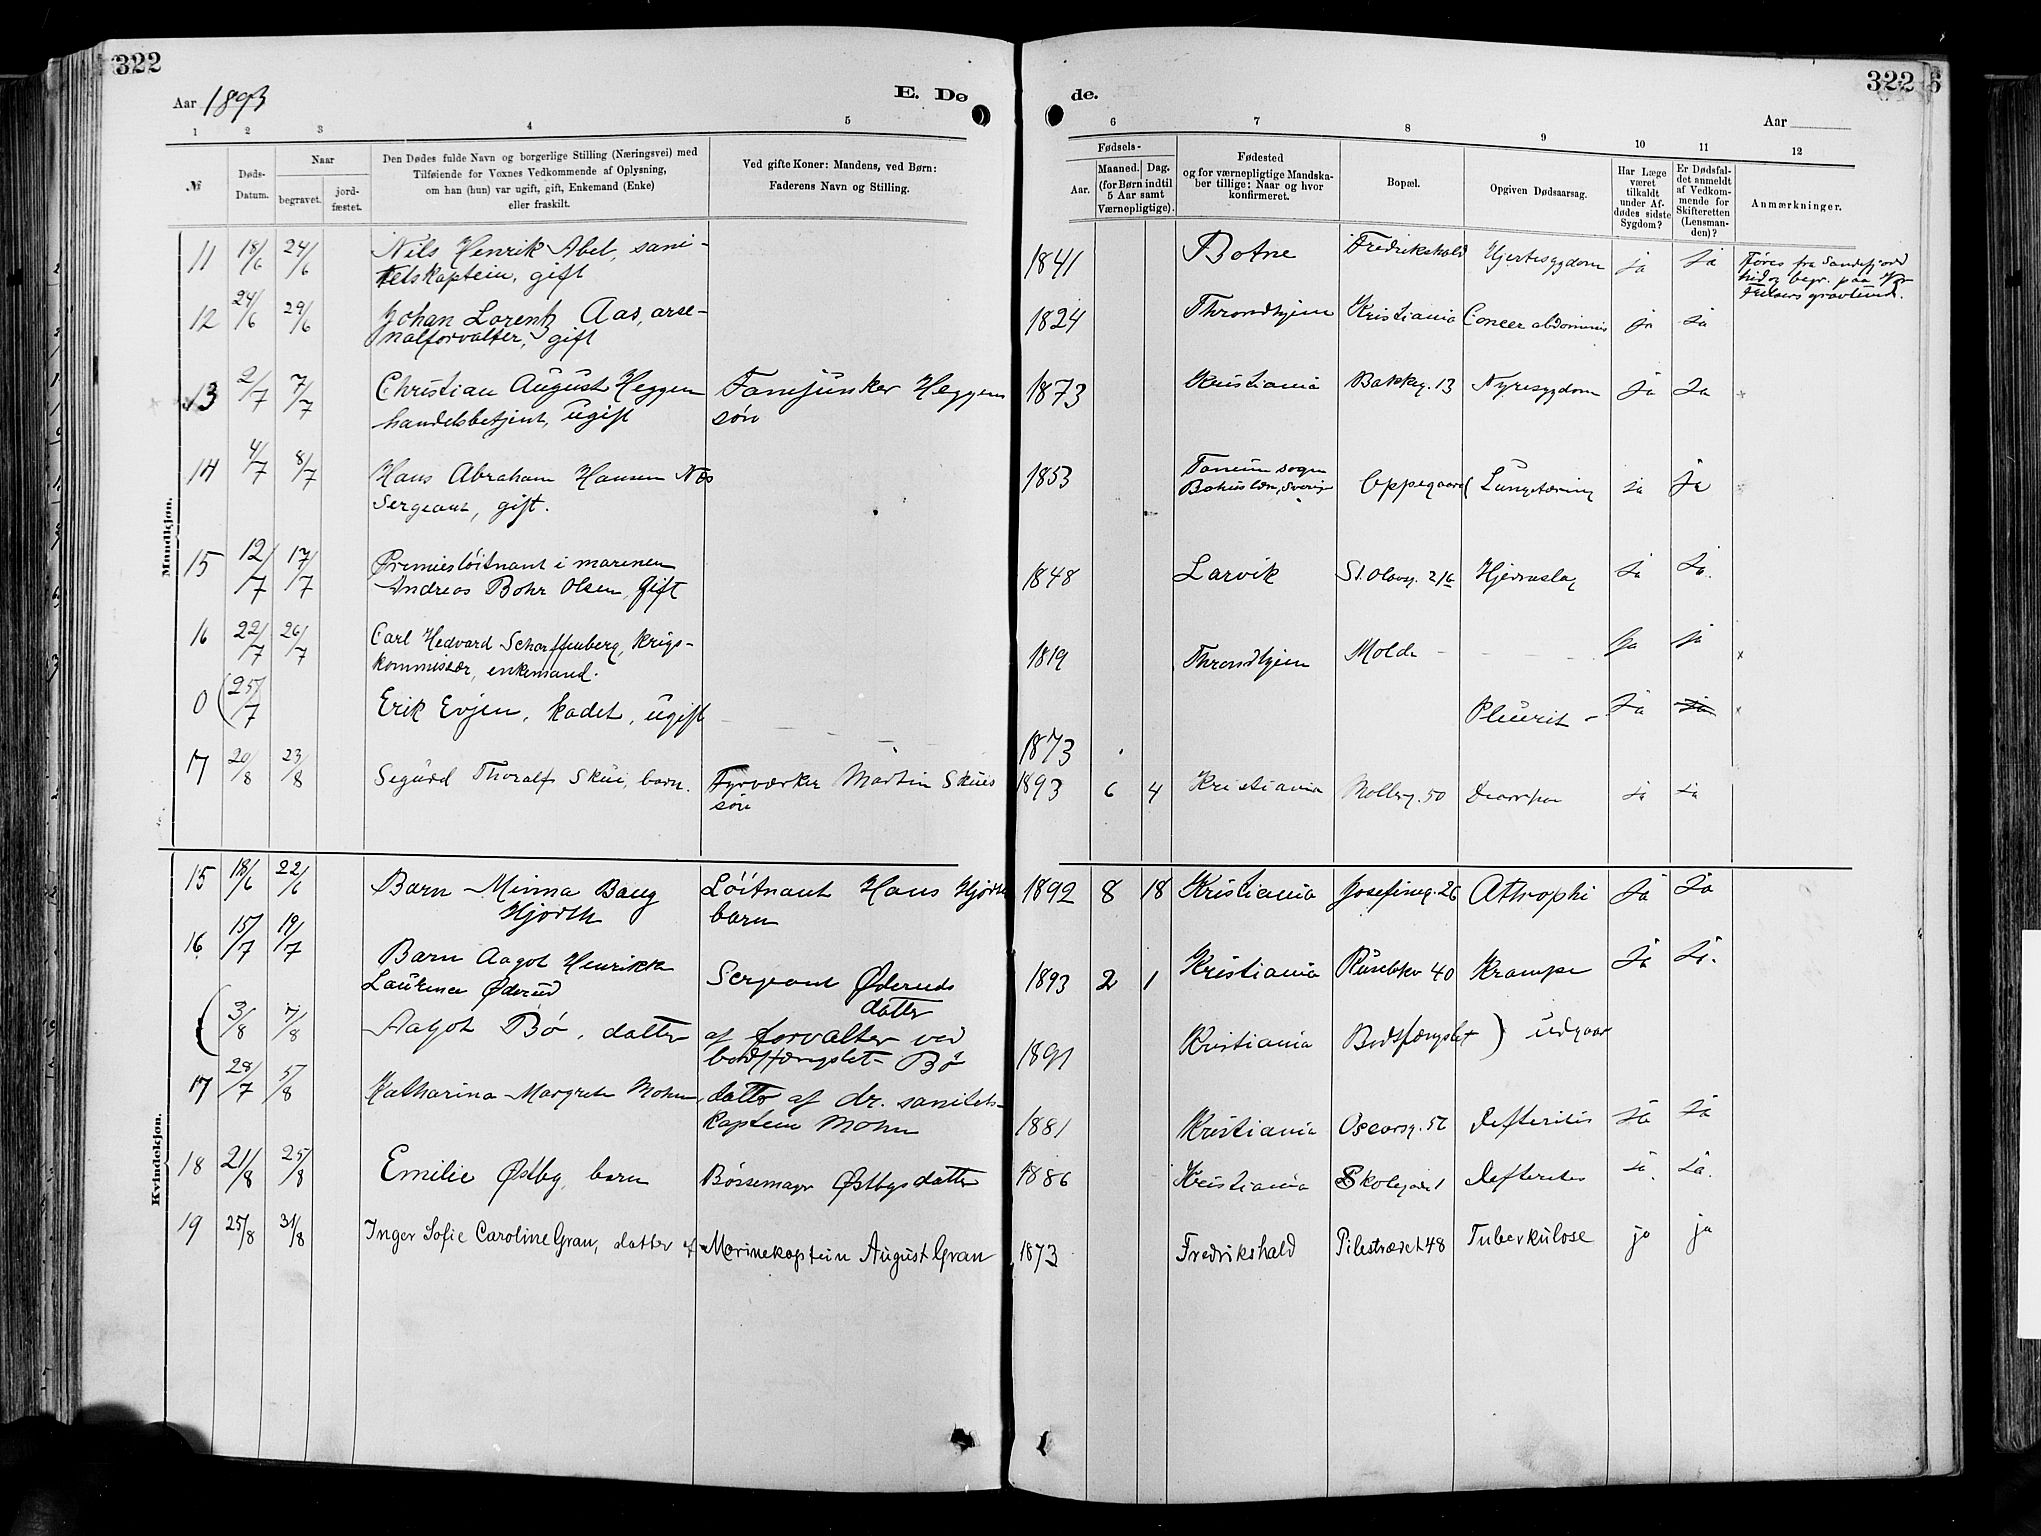 322
322
Aar 1893
E. Dø
de.
Aar
1 2 3 4 5
6 7 8 9 10 11 12
№
Døds-
Datum.
Naar
begravet.
jord-
fæstet.
Den Dødes fulde Navn og borgerlige Stilling (Næringsvei) med
Tilføiende for Voxnes Vedkommende af Oplysning,
om han (hun) var ugift, gift, Enkemand (Enke)
eller fraskilt.
Ved gifte Koner: Mandens, ved Børn:
Faderens Navn og Stilling.
Fødsels-
Aar.
Maaned. Dag.
(for Børn indtil
5 Aar samt
Værnepligtige).
Fødested
og for værnepligtige Mandska-
ber tillige: Naar og hvor
konfirmeret.
Bopæl.
Opgiven Dødsaarsag.
Har Læge
været
tilkaldt
under Af-
dødes sidste
Sygdom?
Er Dødsfal-
det anmeldt
af Vedkom-
mende for
Skifteretten
(Lensman-
den)?
Anmærkninger.
Mandkjøn.
11 18/6 24/6 Nils Henrik Abel, sani- 1841 Botne Fredrikshald Hjertesygdom ja ja Føres fra Sandefjord
tetskaptein, gift hid og begr. paa Vor
Frelsers gravlund.
12 24/6 29/6 Johan Lorentz Aas, arse- 1824 Throndhjem Kristiania Cancer abdominis ja ja
nalforvalter, gift
13 2/7 7/7 Christian August Heggen Fanejunker Heggens 1873 Kristiania Bakkeg. 13 Nyresygdom ja ja
handelsbetjent, ugift søn
14 4/7 8/7 Hans Abraham Hansen Næs 1853 Tanum sogn
Bohuslen, Sverige Oppegaard Lungetæring ja ja
Sergeant, gift.
15 12/7 17/7 Premierløitnant i marinen
Andreas Bohr Olsen, gift 1848 Larvik St. Olavsg. 21b Hjerneslag ja ja.
16 22/7 26/7 Carl Hedvard Scharffenberg, krigs-
kommissær, enkemand. 1819 Throndhjem Molde - - - - ja ja x
0 (25/7 Erik Evjen, kadet, ugift 1873 Pleurit - ja ja x
17 20/8 23/8 Sigurd Thoralf Skui, barn. Fyrværker Martin Skuis
søn 1893 6 4 Kristiania Mollerg. 50 Diarrhoe ja ja
Kvindekjøn.
15 18/6 22/6 Barn Minna Bang
Hjorth Løitnant Hans Hjorth
barn 1892 8 18 Kristiania Josefineg. 26 Athrophi ja ja
16 15/7 19/7 Barn Aagot Henrikke
Laurence Øderud Sergeant Øderuds
datter 1893 2 1 Kristiania Ruseløkv 40 Krampe ja ja.
( 3/8 7/8 Aagot Bø, datter af forvalter ved
bodsfængslet Bø 1891 Kristiania Bodsfængslet ) udgaar
17 28/7 5/8 Katharina Margrete Mohn, datter af dr. sanitets-
kaptein Mohn 1881 Kristiania Oscarsg. 57 Defteritis ja ja
18 21/8 25/8 Emilie Østby, barn Bøssemager Østbys datter 1886 Kristiania Skolegade 1 Defterites ja. ja.
19 25/8 31/8 Inger Sofie Caroline Gran, datter af Marinekaptein August Gran 1873 Fredrikshald Pilestrædet 48 Tuberkulose ja ja